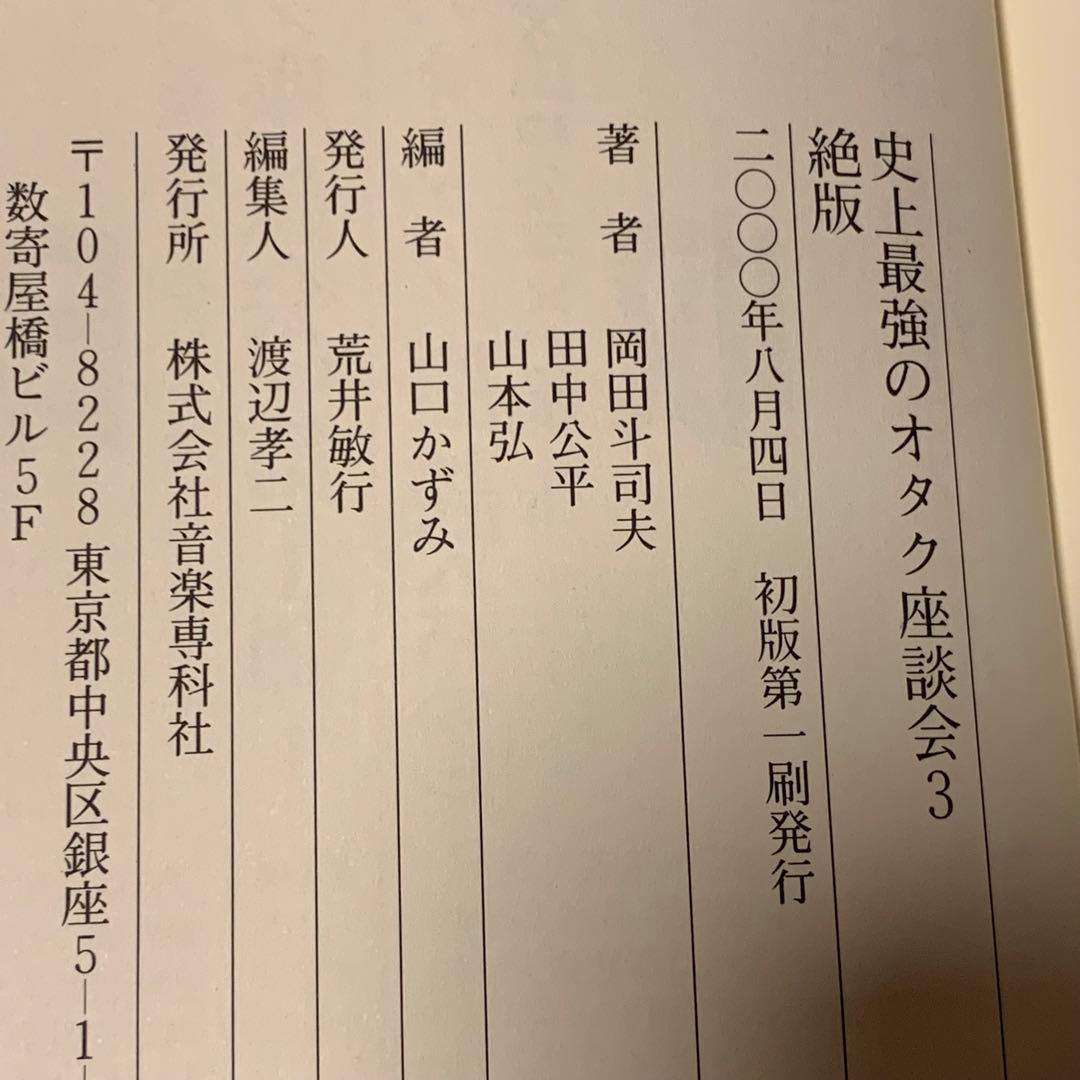 史上最強のオタク座談会3
絶版
二〇〇〇年八月四日 初版第一刷発行
著者 岡田斗司夫
田中公平
山本弘
編者 山口かずみ
発行人 荒井敏行
編集人 渡辺孝二
発行所 株式会社音楽専科社
〒104-8228 東京都中央区銀座5-1-
数寄屋橋ビル5F